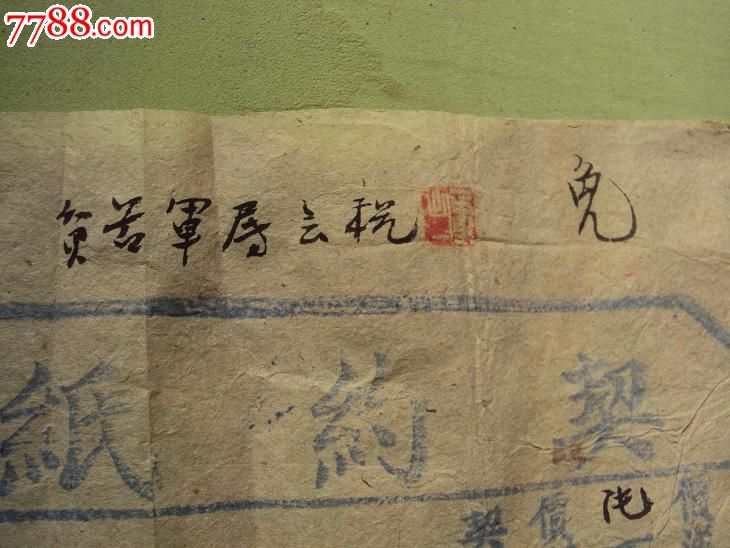 7788.com
貧苦軍属会税 免
契約紙
價
價
契